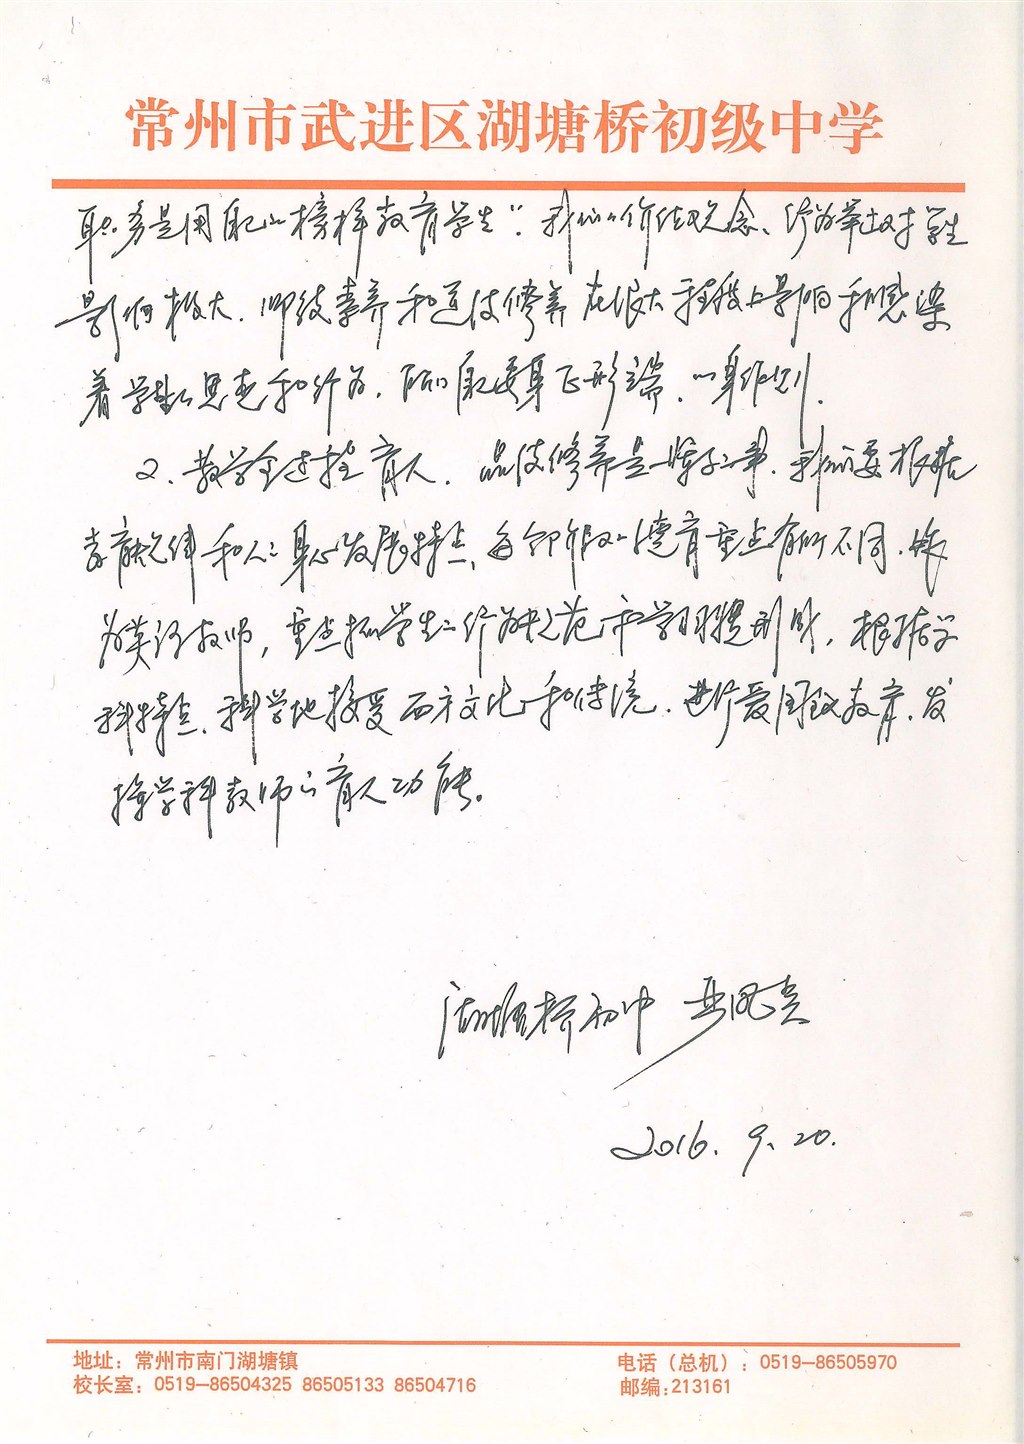 常州市武进区湖塘桥初级中学
职务是用自己的榜样教育学生”。我们的价值观念、行为举止对学生
影响极大。师德素养和道德修养在很大程度上影响和感染
着学生的思想和行为。所以我要身正形端、以身作则。
2、教学全过程育人。品德修养是一辈子的事。我们要根据
教育规律和人的身心发展特点，每个阶段的德育重点有所不同。作
为英语教师，重点抓学生的行为规范和学习习惯，根据学
科特点，科学地接受西方文化和传统。进行爱国主义教育，发
挥学科教师的育人功能。
湖塘桥初中
2016. 9. 20.
地址：常州市南门湖塘镇
电话（总机）：0519-86505970
校长室：0519-86504325 86505133 86504716
邮编:213161